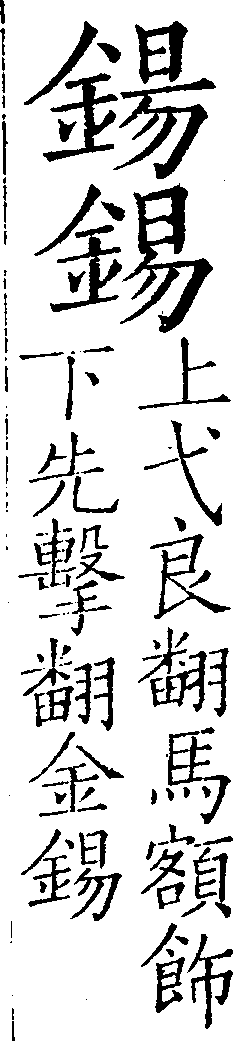 鍚錫
上弋良翻馬額飾
下先擊翻金錫